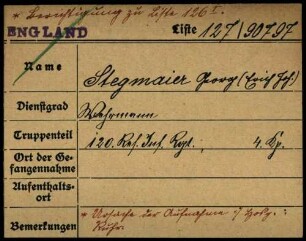 * Berichtigung zu Liste 126 I.
ENGLAND Liste 127/90797
Name Stegmaier Georg (Erich Jos)
Dienstgrad Wehrmann
Truppenteil 120. Res. Inf. Rgt. ; 4. Kp.
Ort der Ge-
fangennahme
Aufenthalts-
ort
Bemerkungen * Ursache der Aufnahme i/ Hosp.:
Ruhr.